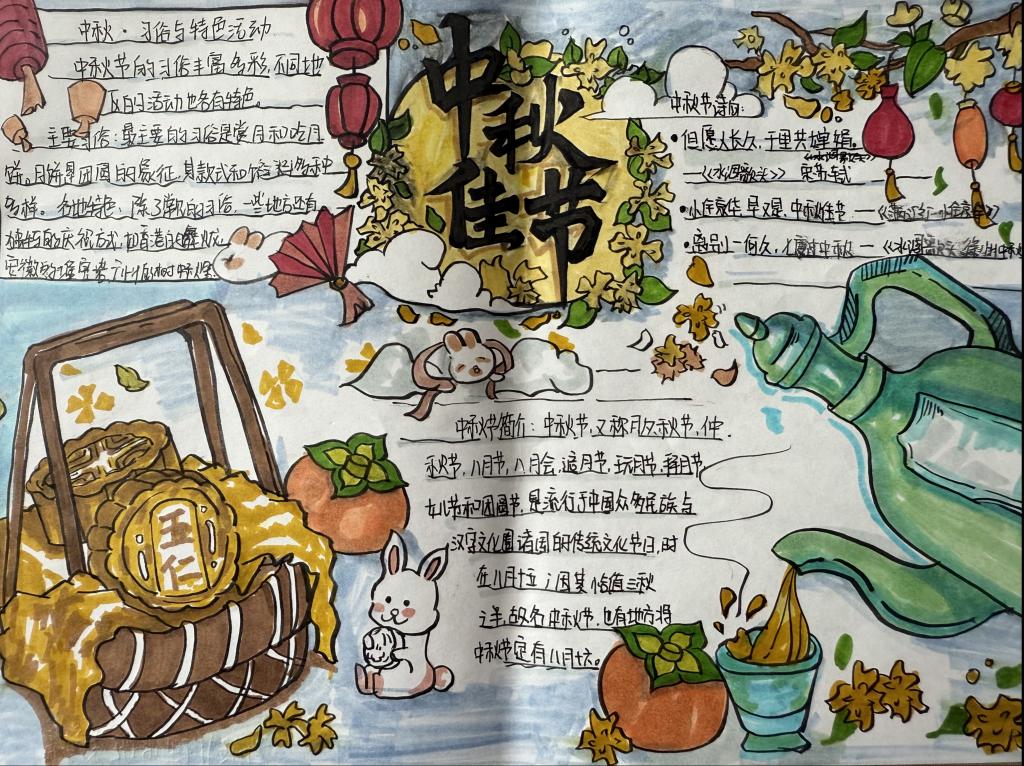 中秋·习俗与特色活动
中秋节的习俗丰富多彩,不同地
区的活动也各有特色。
主要习俗:最主要的习俗是赏月和吃月
饼。月饼是团圆的象征,其款式和馅料多种
多样。各地特色:除了常见的习俗,一些地方还有
独特的庆祝方式,如香港的舞火
安徽的堆宝塔
中秋佳节
中秋节诗句:
•但愿人长久,千里共婵娟。
—《水调歌头》 宋 苏轼
•小庭
早又是,中秋佳节 —《满江红·小住京华》
•离别一何久,七度过中秋 —《水调歌头·徐州中秋
中秋节简介:中秋节,又称月夕秋节,仲
秋节,八月节,八月会,追月节,玩月节,拜月节,
女儿节和团圆节,是流行于中国众多民族与
汉字文化圈诸国的传统文化节日,时
在八月十五;因其恰值三秋
之半,故名中秋节,也有地方将
中秋节定有八月十六。
五仁